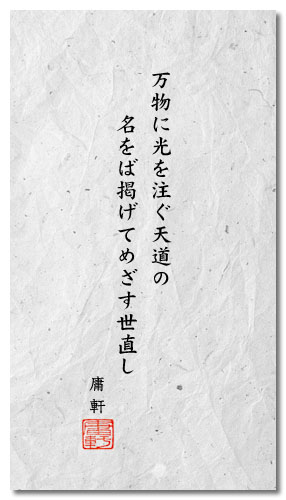 万物に光を注ぐ天道の
名をば掲げてめざす世直し
庸軒